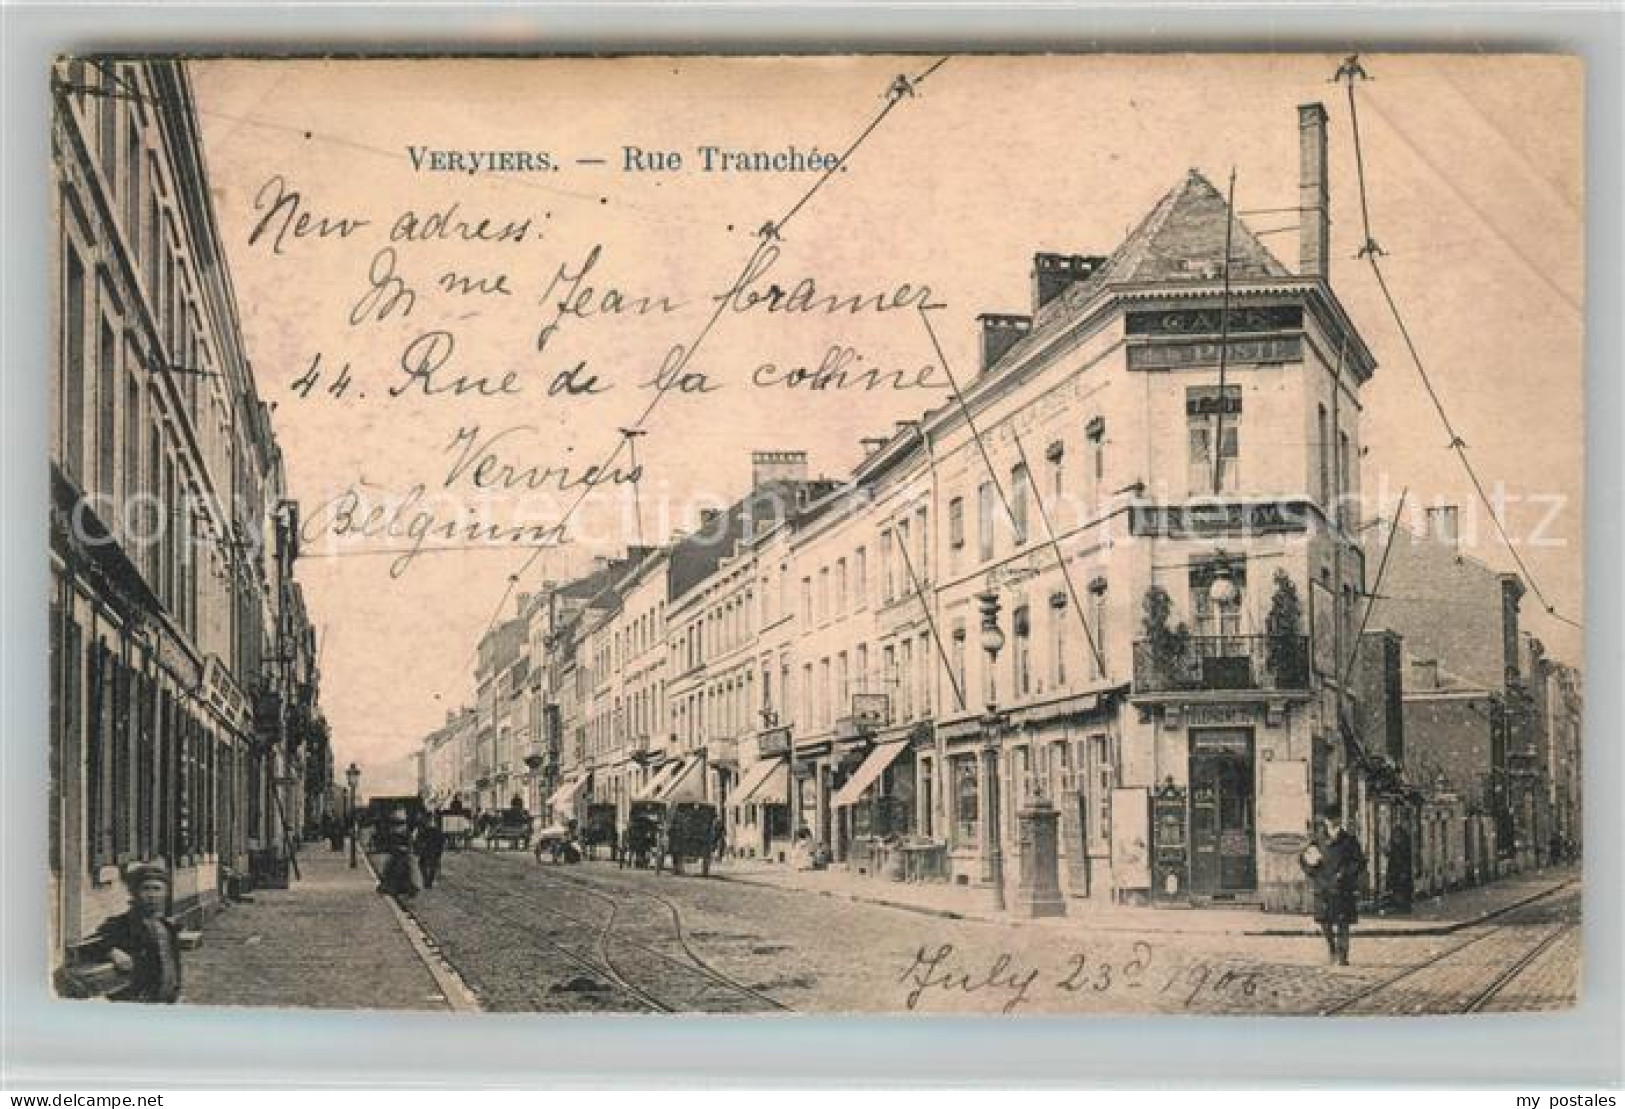 VERVIERS. — Rue Tranchée.
New adress:
Mme Jean Cramer
44. Rue de la colline
Verviers
Belgium
copyright protection by kopierschutz
CAFÉ
July 23d 1906.
delcampe.net
my_postales